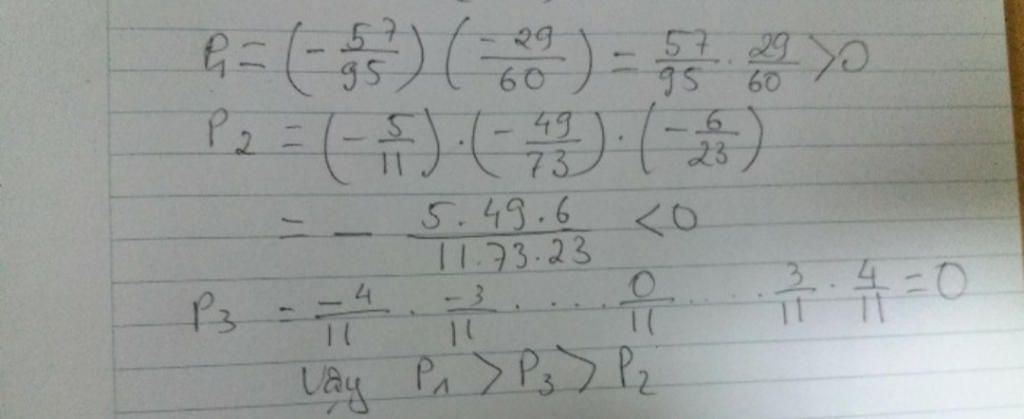 P₁ = (- 57/95) (-29/60) = 57/95 · 29/60 > 0
P₂ = (- 5/11) · (- 49/73) · (- 6/23)
= - 5.49.6/11.73.23 < 0
P₃ = -4/11 · -3/11 · ... · 0/11 ..... 3/11 · 4/11 = 0
Vậy P₁ > P₃ > P₂